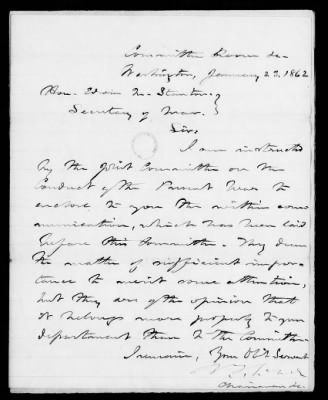 Committee Room &c
Washington, January 23, 1862
Hon. Edwin M. Stanton
Secretary of War.
Sir,
I am instructed
by the Joint Committee on the
Conduct of the Present War to
enclose to you the within com
munication, which has been laid
before this Committee. They deem
the matter of sufficient impor-
tance to merit some attention,
but they are of the opinion that
it belongs more properly to your
department than to the Committee.
I remain, Your Obt. Servant
Chairman &c.